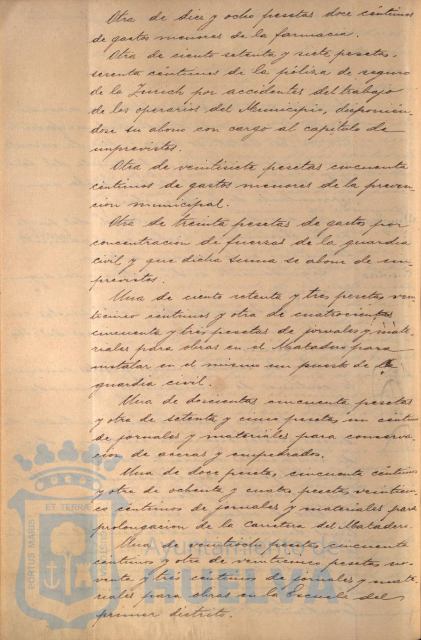 Otra de diez y ocho pesetas doce céntimos
de gastos menores de la farmacia.
Otra de ciento setenta y siete pesetas,
sesenta céntimos de la póliza de seguro
de la Zurich por accidentes del trabajo
de los operarios del Municipio, disponién-
dose su abono con cargo al capítulo de
imprevistos.
Otra de veintisiete pesetas cincuenta
céntimos de gastos menores de la preven-
ción municipal.
Otra de treinta pesetas de gastos por
concentración de fuerzas de la guardia
civil, y que dicha suma se abone de im-
previstos.
Una de ciento setenta y tres pesetas, vein
ticinco céntimos y otra de cuatrocientas
cincuenta y tres pesetas de jornales y mate-
riales para obras en el Matadero para
instalar en el mismo un puesto de la
guardia civil.
Una de doscientas cincuenta pesetas
y otra de setenta y cinco pesetas, un céntimo
de jornales y materiales para conserva-
ción de aceras y empedrados.
Una de doce pesetas, cincuenta céntimos
y otra de ochenta y cuatro pesetas, veintiun-
co céntimos de jornales y materiales para
prolongación de la Carretera del Matadero.
Una de veintiocho pesetas, cincuenta
céntimos y otra de veinticinco pesetas no-
venta y tres céntimos de jornales y mate-
riales para obras en la Escuela del
primer distrito.
PORTUS MARIS
ET TERRÆ
Ayuntamiento de
HUELVA